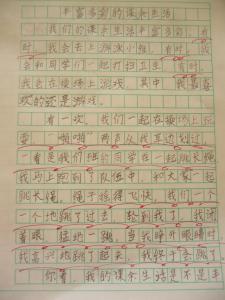 丰富多彩的课余生活
我们的课余生活丰富多彩，有
时，我会去上游泳小组，有时，我
会和同学们一起打扫卫生，有时，
我会在操场上游戏，其中，我最喜
欢的还是游戏。
有一次，我们一起在操场上玩
耍，“啪啪”两声从我耳边划过，
一看是我们班的同学在一起跳长绳
我马上跑到了队伍中，和大家一起
跳长绳，绳子摇得飞快，我们一个
一个地跳了过去，轮到我了，我闭
着眼，猛地一跳，当我睁开眼睛时
我高兴地跳了起来，我终于会跳了
你看，我的课余生活是不是丰